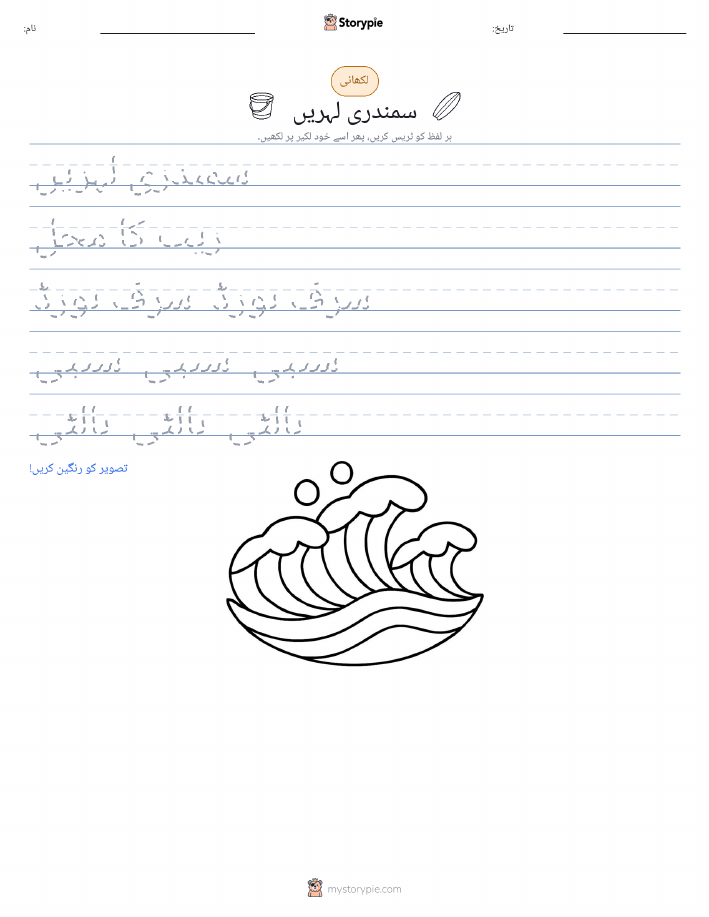 نام:
Storypie
تاریخ:
لکھائی
سمندری لہریں
ہر لفظ کو ٹریس کریں، پھر اسے خود لکیر پر لکھیں۔
سمندری لہریں
ریت کا محل
سرف بورڈ سرف بورڈ
سیپی سیپی سیپی
بالٹی بالٹی بالٹی
تصویر کو رنگین کریں!
mystorypie.com